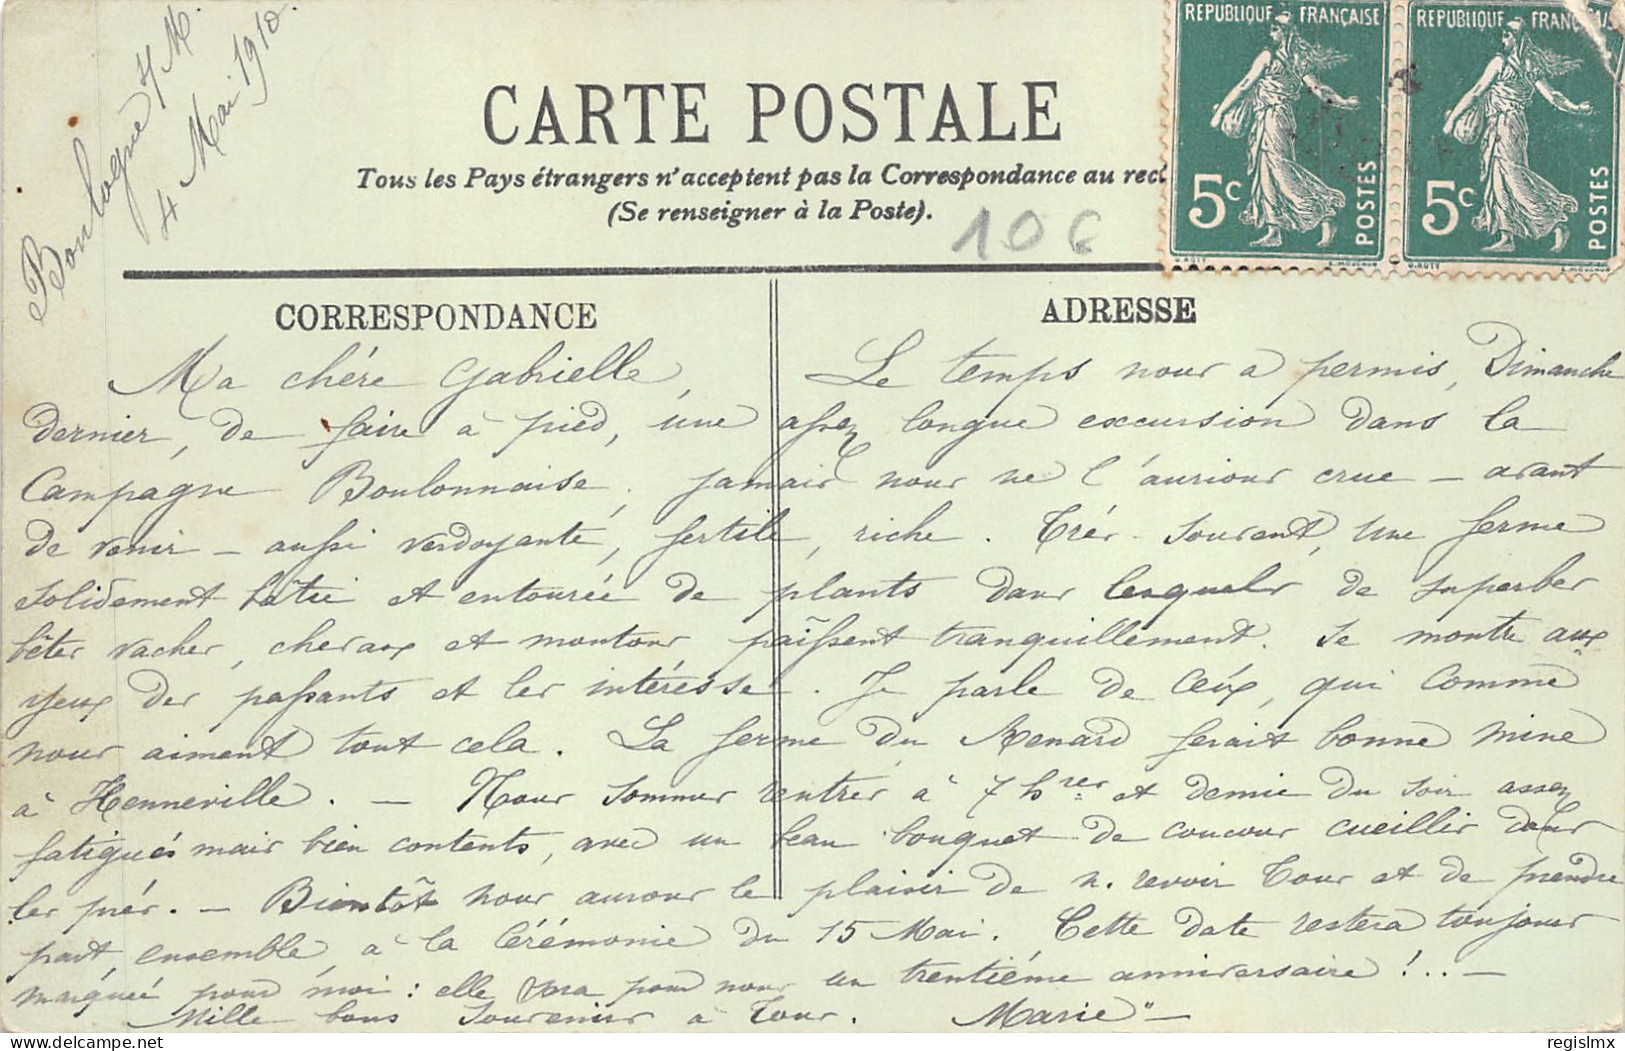 Boulogne s/ M.
4 Mai 1910.
CARTE POSTALE
Tous les Pays étrangers n'acceptent pas la Correspondance au rect
(Se renseigner à la Poste).
10 c
REPUBLIQUE FRANÇAISE
5c
POSTES
REPUBLIQUE FRANÇAIS
5c
POSTES
CORRESPONDANCE
ADRESSE
Ma chére Gabrielle, Le temps nous a permis, Dimanche
dernier, de faire à pied, une assez longue excursion dans la
Campagne Boulonnaise, jamais nous ne l'aurions crue – avant
de venir – aussi verdoyante, fertile, riche. Très souvent, une ferme
solidement bâtie et entourée de plants dans lesquels de superbes
bêtes vaches, chevaux et moutons paissent tranquillement. Se montre aux
yeux des passants et les intéresse. Je parle de ceux, qui comme
nous aiment tout cela. La ferme du Renard ferait bonne mine
à Henneville. – Nous sommes rentrés à 7 hres et demie du soir assez
fatigués mais bien contents, avec un beau bouquet de coucous cueillis dans
les prés. – Bientôt nous aurons le plaisir de n. revoir Tous et de prendre
part, ensemble à la Cérémonie du 15 Mai. Cette date restera toujours
marquée pour moi : elle sera pour nous un trentième anniversaire !.. –
Mille bons souvenirs à Tous. Marie" –
regislmx